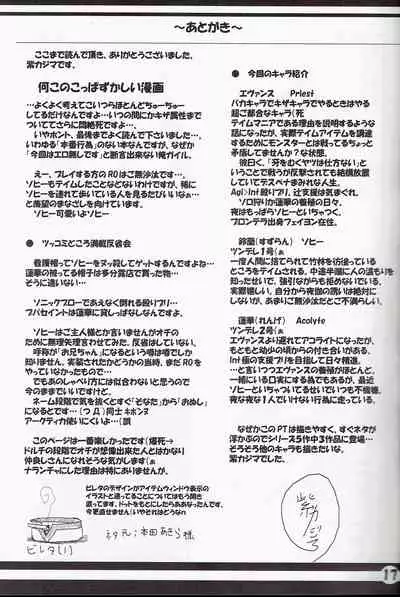 ～あとがき～
ここまで読んで頂き、ありがとうございました。
紫カジマです。
何このこっぱずかしい漫画
…よくよく考えてこいつらほとんどちゅーちゅー
してるだけなんですよ…いつの間にかキザ属性まで
ついててさらに悶絶死ですよ…。
いやホント、最後までよく読んで下さいました。
いわゆる「本番行為」のない本なんですが、なぜか
「今回はエロ無しです」と断言出来ない俺ガイル。
えー、プレイする方のROはご無沙汰でつ。
ソヒーもテイムしたことなどないわけですが、稀に
ソヒーを連れて歩いている人を見るたびいいなぁ…
と羨望のまなざしを向けています。
ソヒー可愛いよソヒー
● ツッコミどころ満載反省会
看護帽ってソヒーをヌッ殺してゲットするんですよね…
蓮華の被ってる帽子は多分露店で買った物…
そうに違いない…
ソニックブローであえなく倒れる殺りプリ…
ブパセイントは蓮華に貸しっぱなしなんですよ。
ソヒーはご主人様とか言いませんがオチの
ために無理処言わせてみた。反省はしていない。
呼称が「お兄ちゃん」になるという噂は噂でしか
知りません。実装されたかどうかの当時、まだROを
やっていなかったもので…
でもあのしゃべり方には似合わないと思うので
今のままでいいですけど。
ネーム段階で気を抜くとすぐ「そなた」から「おぬし」
になるとです…（つД）同士キホンヌ
アーケティカ使いにくいよ…（誤
このページは一番楽しかったです（爆死→
ドルチの段階でオチが想像出来た人とはかなり
仲良しさんになれそうな気がします（ぁ
ナランチャにした理由は特にありませんが。
ピレタのデザインがアイテムウィンドウ表示の
イラストと違ってることについてはもう開き
直ってます。ドットをもとにしたらああなったんです。
今更直せません（いやそれはどうなn
ピレタ(!)
ネタ元：本田あきら様
● 今回のキャラ紹介
エヴァンス Priest
バカキャラでキザキャラでやるときはやる
超ご都合なキャラ（死
テイムマニアである理由を説明するような
話になったが、実際テイムアイテムを調達
するためにモンスターとは戦ってるちょっと
矛盾してませんか？な状態。
彼曰く、「牙をむくヤツは仕方ない」と
いうことで戦うが反撃されても結構放置し
ていてデスペナまみれな人生。
Agi>Int殴りプリ、辻支援は気まぐれ。
ソロ狩りか蓮華の養殖の日々。
夜はもっぱらソヒーといちゃつく。
プロンテラ出身フェイヨン在住。
鈴蘭(すずらん) ソヒー
ツンデレ1号(ぁ
一度人間に捨てられて竹林を彷徨っている
ところをテイムされる。中途半端に人の温もりを
知ったせいで、強引ながらも拒めないでいる。
実際嬉しい。自分から夜伽の誘いは絶対に
しないが、あまりご無沙汰だとご不満らしい。
蓮華(れんげ) Acolyte
ツンデレ2号(ぁ
エヴァンスより遅れてアコライトになったが、
もともと幼少の頃からの付き合いがある。
Int極の支援プリを目指して日々精進。
…と言いつつエヴァンスの養殖がほとんど。
一緒にいる口実にする為でもあるが、最近
ソヒーといちゃついてる せいでいつも不機嫌。
夜な夜な1人でいけない行為に走っている。
なぜかこのPTは描きやすく、すぐネタが
浮かぶのでシリーズ5作中3作品に登場…
そろそろ他のキャラも描きたいな。
紫カジマでした。
17